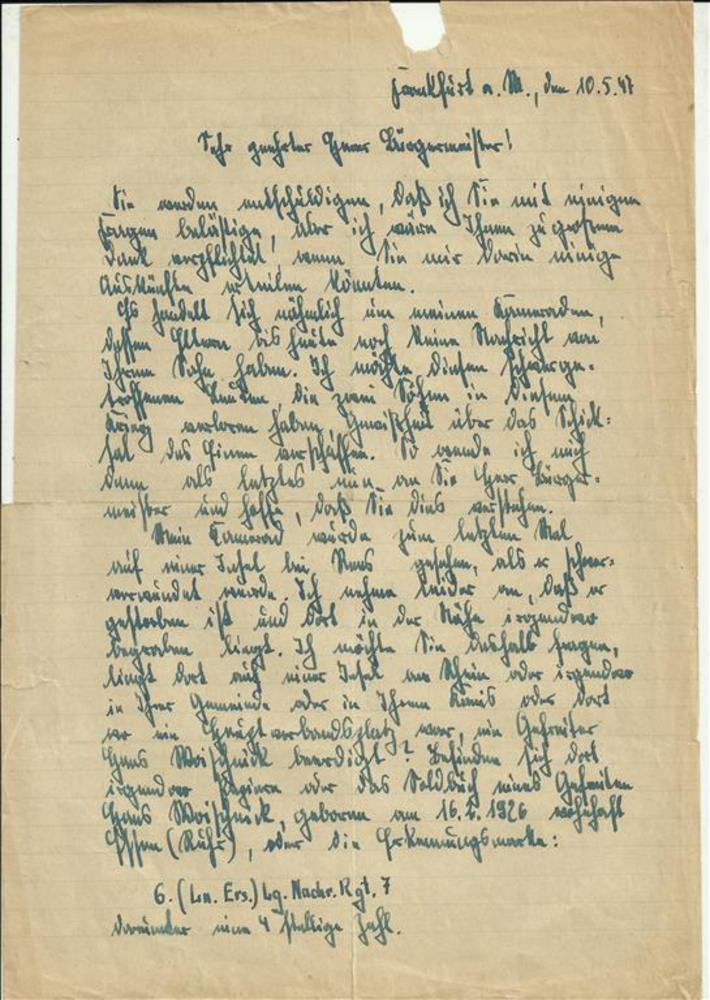 Frankfurt a. M., den 10.5.47
Sehr geehrter Herr Bürgermeister!
Sie werden entschuldigen, daß ich Sie mit einigen
Fragen belästige, aber ich wäre Ihnen zu großem
Dank verpflichtet, wenn Sie mir darin einige
Auskünfte erteilen könnten.
Es handelt sich nähmlich um meinen Kameraden,
dessen Eltern bis heute noch keine Nachricht von
Ihrem Sohn haben. Ich möchte diesen schwerge-
troffenen Leuten, die zwei Söhne in diesem
Krieg verloren haben, Gewißheit über das Schick-
sal des Einen verschaffen. So wende ich mich
denn als letztes nun an Sie Herr Bürger-
meister und hoffe, daß Sie dies verstehen.
Mein Kamerad wurde zum letzten Mal
auf einer Insel bei Rees gesehen, als er schwer-
verwundet wurde. Ich nehme leider an, daß er
gestorben ist und dort in der Nähe irgendwo
begraben liegt. Ich möchte Sie deshalb fragen,
liegt dort auf einer Insel am Rhein oder irgendwo
in Ihrer Gemeinde oder in Ihrem Kreis oder dort
wo ein Hauptverbandsplatz war, ein Gefreiter
Hans Woischnick beerdigt? Befinden sich dort
irgendwo Papiere oder das Soldbuch eines Gefreiten
Hans Woischnick, geboren am 16. 1926 wohnhaft
Essen (Ruhr), oder die Erkennungsmarke:
6. (Ln. Ers.) Lg. Nachr. Rgt. 7
darunter eine 4 stellige Zahl.